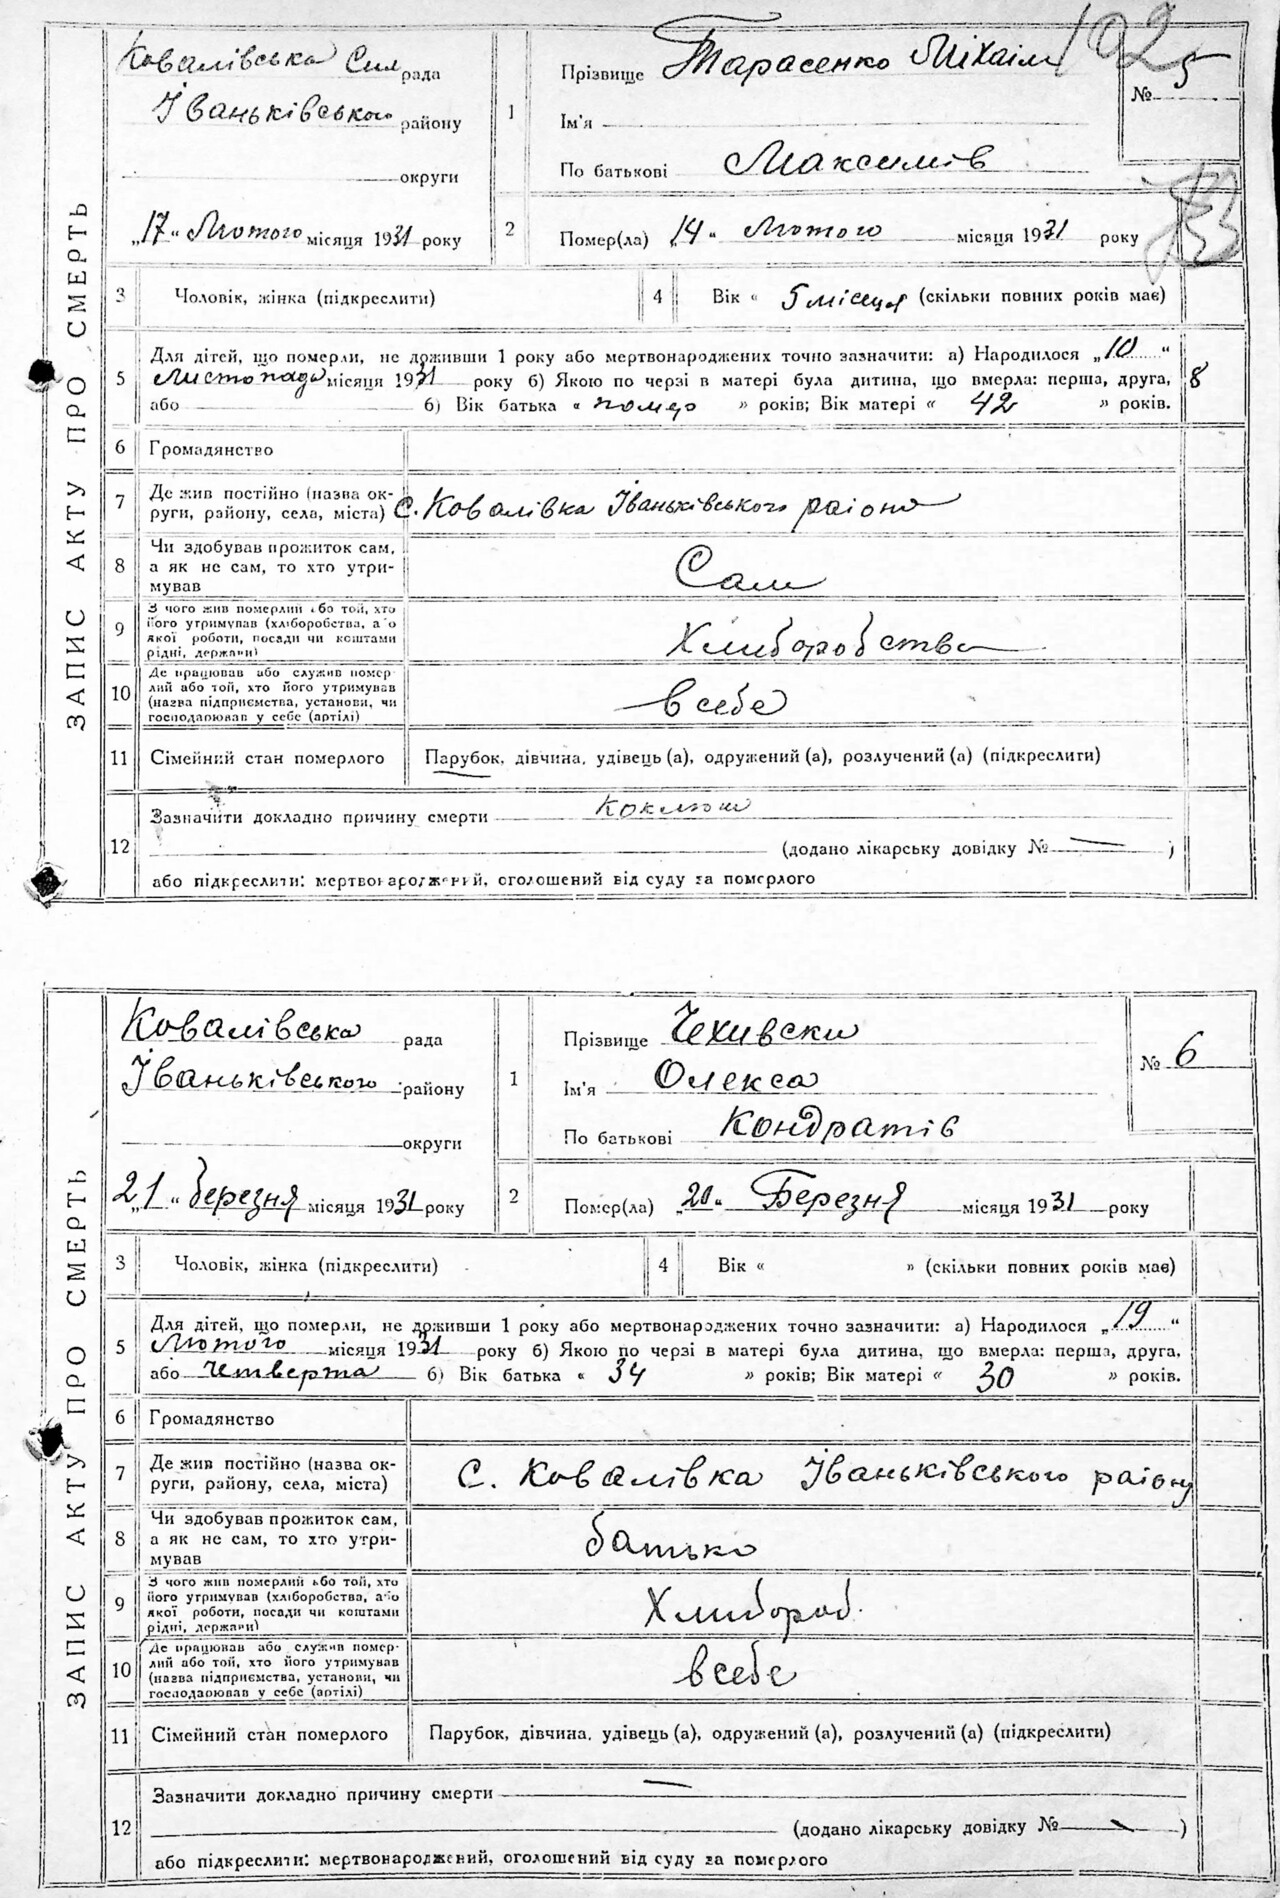 ЗАПИС АКТУ ПРО СМЕРТЬ
102
Ковалівська Сил рада
Іваньківського району
округи
„17“ Лютого місяця 1931 року
1
Прізвище Тарасенко Міхаіл
Ім'я
По батькові Максимів
№ 5
2
Помер(ла) „14“ Лютого місяця 1931 року
3 Чоловік, жінка (підкреслити)
4 Вік « 5 місяця (скільки повних років має)
5 Для дітей, що померли, не доживши 1 року або мертвонароджених точно зазначити: а) Народилося „10“
Листопада місяця 1931 року б) Якою по черзі в матері була дитина, що вмерла: перша, друга, 8
або б) Вік батька « помер » років; Вік матері « 42 » років.
6 Громадянство
7 Де жив постійно (назва ок-
руги, району, села, міста) С. Ковалівка Іваньківського району
8 Чи здобував прожиток сам,
а як не сам, то хто утри-
мував Сам
9 З чого жив померлий або той, хто
його утримував (хліборобства, або
якої роботи, посади чи коштами
рідні, держави) Хлиборобство
10 Де працював або служив помер-
лий або той, хто його утримував
(назва підприємства, установи, чи
господарював у себе (артілі) в себе
11 Сімейний стан померлого Парубок, дівчина, удівець (а), одружений (а), розлучений (а) (підкреслити)
12 Зазначити докладно причину смерти коклюш
(додано лікарську довідку № — )
або підкреслити: мертвонароджений, оголошений від суду за померлого
ЗАПИС АКТУ ПРО СМЕРТЬ
Ковалівська рада
Іваньківського району
округи
„21“ березня місяця 1931 року
1
Прізвище Чехивски
Ім'я Олекса
По батькові Кондратів
№ 6
2
Помер(ла) „20“ Березня місяця 1931 року
3 Чоловік, жінка (підкреслити)
4 Вік « » (скільки повних років має)
5 Для дітей, що померли, не доживши 1 року або мертвонароджених точно зазначити: а) Народилося „19“
Лютого місяця 1931 року б) Якою по черзі в матері була дитина, що вмерла: перша, друга,
або Четверта б) Вік батька « 34 » років; Вік матері « 30 » років.
6 Громадянство
7 Де жив постійно (назва ок-
руги, району, села, міста) С. Ковалівка Іваньківського району
8 Чи здобував прожиток сам,
а як не сам, то хто утри-
мував батько
9 З чого жив померлий або той, хто
його утримував (хліборобства, або
якої роботи, посади чи коштами
рідні, держави) Хлибороб.
10 Де працював або служив помер-
лий або той, хто його утримував
(назва підприємства, установи, чи
господарював у себе (артілі) в себе
11 Сімейний стан померлого Парубок, дівчина, удівець (а), одружений (а), розлучений (а) (підкреслити)
12 Зазначити докладно причину смерти —
(додано лікарську довідку № — )
або підкреслити: мертвонароджений, оголошений від суду за померлого